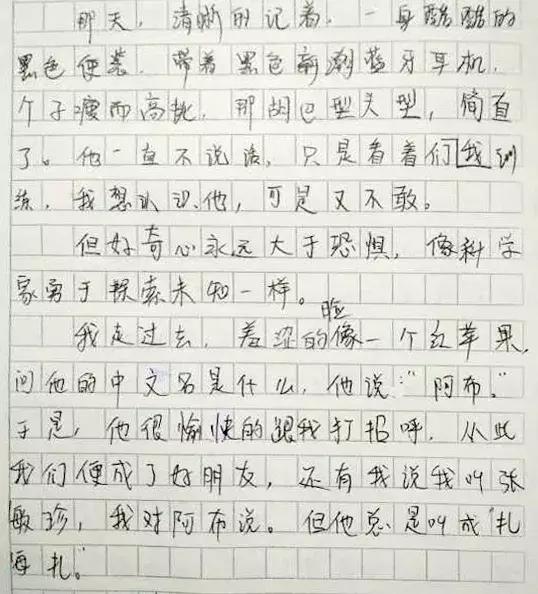 那天，清晰的记着，一身酷酷的
黑色便装，带着黑色新潮蓝牙耳机，
个子瘦而高挑，那胡巴型头型，简直
了。他一直不说话，只是看着们我训
练，我想认识他，可是又不敢。
但好奇心永远大于恐惧，像科学
家勇于探索未知一样。
我走过去，羞涩的脸像一个红苹果，
问他的中文名是什么，他说：“阿布。”
于是，他很愉快的跟我打招呼，从此
我们便成了好朋友，还有我说我叫张
敏珍，我对阿布说。但他总是叫成“扎
海扎。”